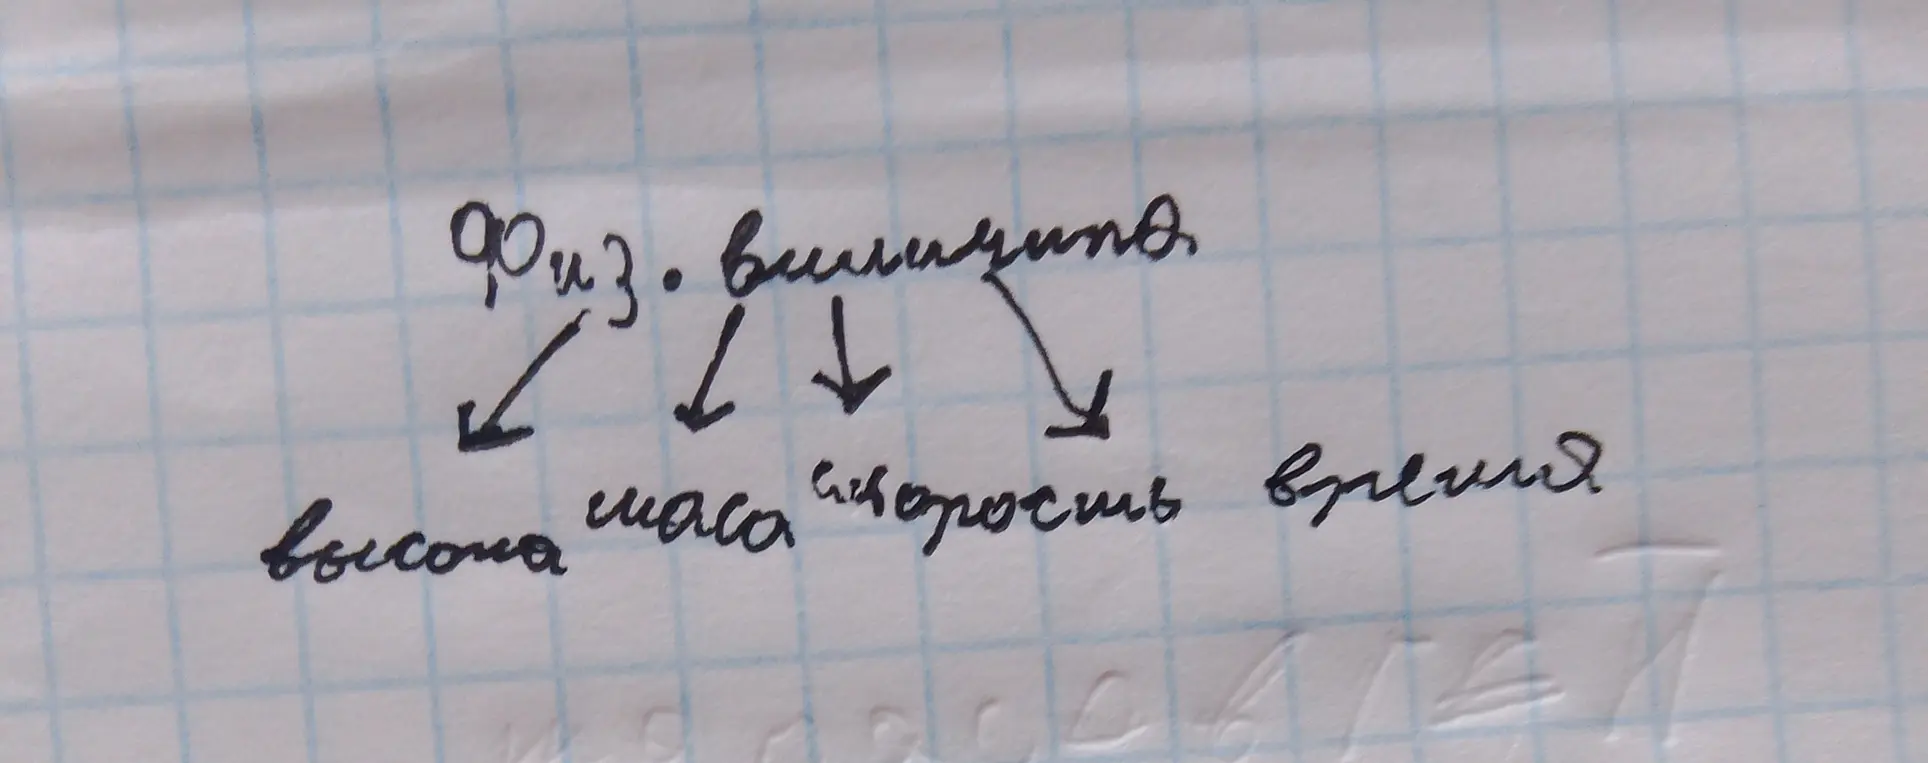 Физ. виличина
высота маса скорость время